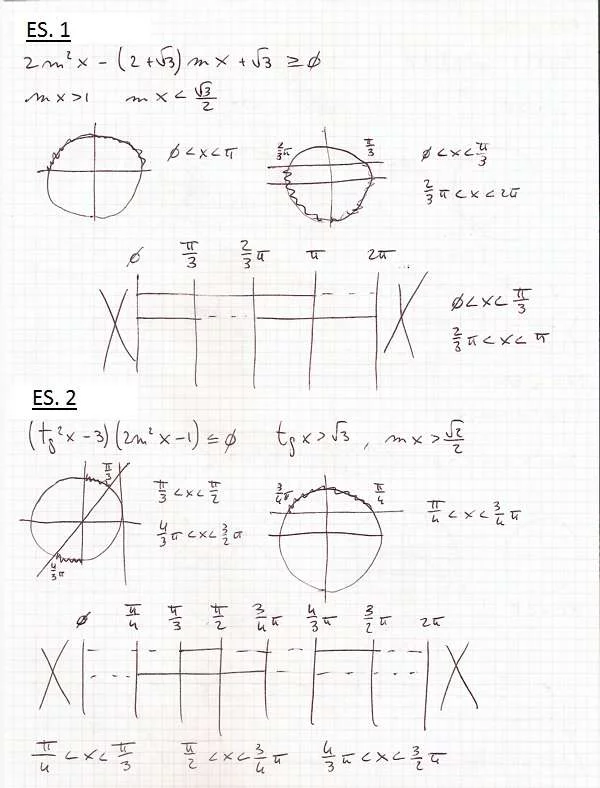 ES. 1
2m²x - (2+√3)mx + √3 ≥ ∅
mx>1 mx < √3/2
∅<x<π 2/3π π/3 ∅<x<π/3
2/3π<x<2π
∅ π/3 2/3π π 2π
X X ∅<x<π/3
2/3π<x<π
ES. 2
(tg²x-3)(2m²x-1) ≤ ∅ tgx>√3, mx>√2/2
π/3 π/3<x<π/2 3/4π π/4 π/4<x<3/4π
4/3π 4/3π<x<3/2π
∅ π/4 π/3 π/2 3/4π 4/3π 3/2π 2π
X X
π/4<x<π/3 π/2<x<3/4π 4/3π<x<3/2π